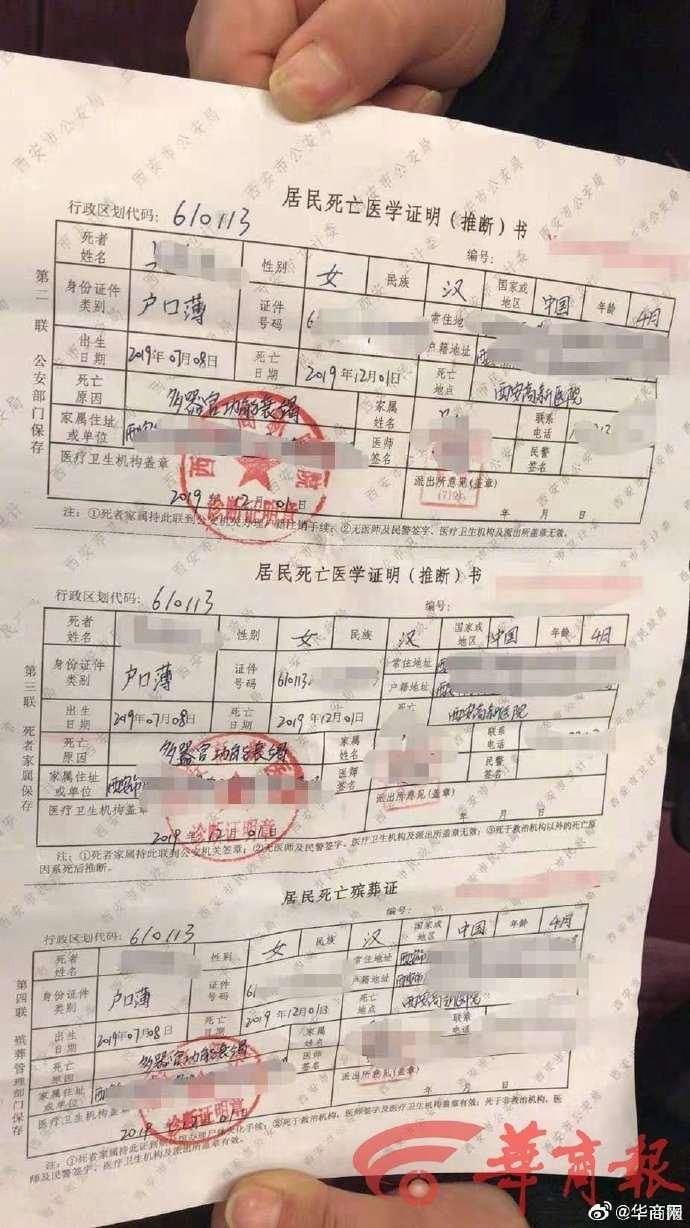 居民死亡医学证明（推断）书
行政区划代码：610113 编号：
死者姓名 性别 女 民族 汉 国家或地区 中国 年龄 4月
身份证件类别 户口薄 证件号码 6 常住地 户籍地址
出生日期 2019年07月08日 死亡日期 2019年12月01日 死亡地点 西安高新医院
死亡原因 多器官功能衰竭 家属姓名 联系电话
家属住址或单位 医师签名 民警签名
医疗卫生机构盖章 派出所意见(盖章)
2019年12月01日 年 月 日
诊断证明章
注：①死者家属持此联到公安机关办理户籍注销手续；②无医师及民警签字、医疗卫生机构及派出所盖章无效。
第二联 公安部门保存
居民死亡医学证明（推断）书
行政区划代码：610113 编号：
死者姓名 性别 女 民族 汉 国家或地区 中国 年龄 4月
身份证件类别 户口薄 证件号码 610113 常住地址 户籍地址
出生日期 2019年07月08日 死亡日期 2019年12月01日 死亡 西安高新医院
死亡原因 多器官功能衰竭 家属 联系电话
家属住址或单位 医师签名 民警签名
医疗卫生机构盖章 派出所意见(盖章)
2019年12月01日 年 月 日
诊断证明章
注：①死者家属持此联到公安机关签章；②无医师及民警签字、医疗卫生机构及派出所盖章无效；③死于救治机构以外的死亡原因系死后推断。
第三联 死者家属保存
居民死亡殡葬证
行政区划代码：610113 编号：
死者姓名 性别 女 民族 汉 国家或地区 中国 年龄 4月
身份证件类别 户口薄 证件号码 6 常住地址 户籍地址
出生日期 2019年07月08日 死亡日期 2019年12月01日 死亡地点 西安高新医院
死亡原因 多器官功能衰竭 家属 联系电话
家属住址或单位 医师签名 民警签名
医疗卫生机构盖章 派出所意见(盖章)
年 月 日
诊断证明章
第四联 殡葬管理部门保存
華商報
@华商网